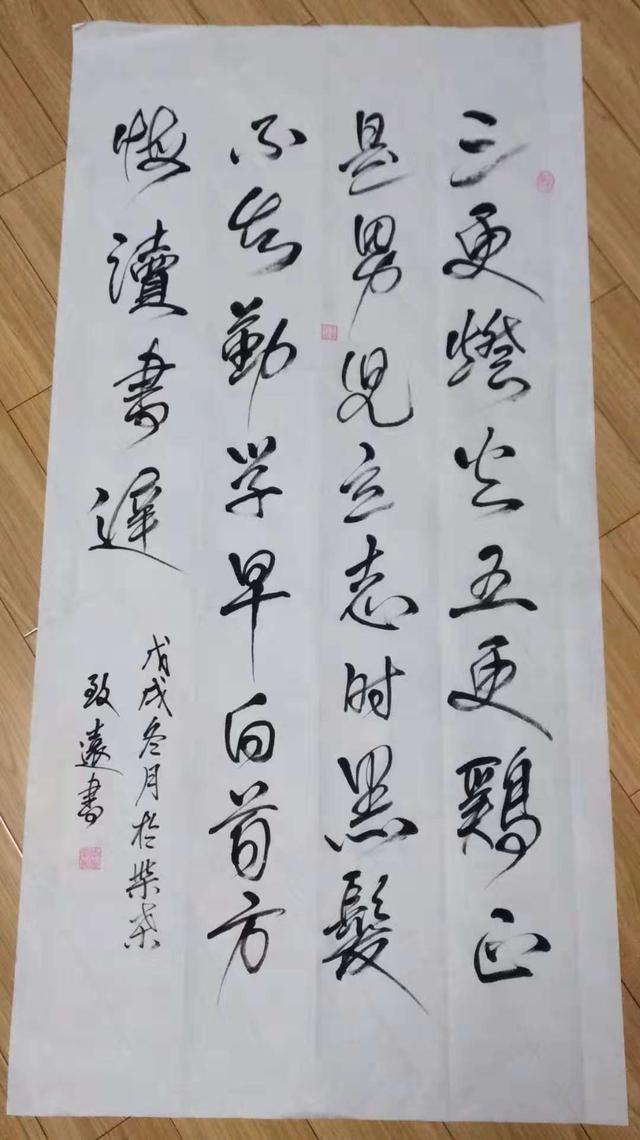 三更燈火五更鷄正
是男兒立志时黑髮
不知勤学早白首方
悔讀書遲
戊戌冬月於柴桑
致遠書